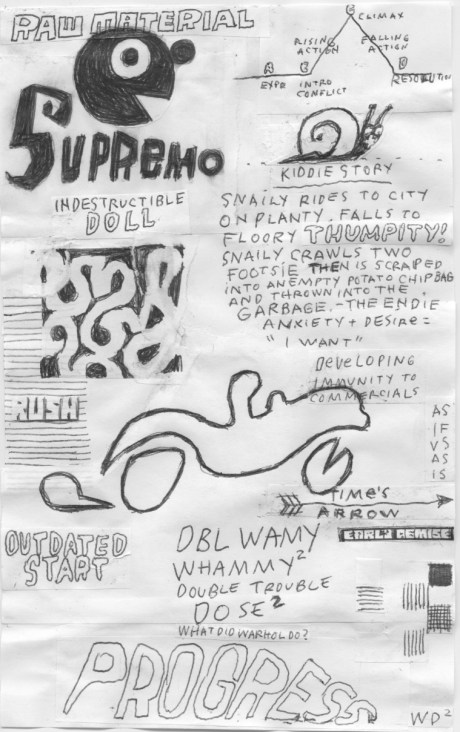 RAW MATERIAL
SUPREMO
INDESTRUCTIBLE
DOLL
C
CLIMAX
RISING
ACTION
FALLING
ACTION
A
B
D
EXPO
INTRO
CONFLICT
RESOLUTION
KIDDIE STORY
SNAILY RIDES TO CITY
ON PLANTY. FALLS TO
FLOORY THUMPITY!
SNAILY CRAWLS TWO
FOOTSIE THEN IS SCRAPED
INTO AN EMPTY POTATO CHIP BAG
AND THROWN INTO THE
GARBAGE. - THE ENDIE
ANXIETY + DESIRE =
"I WANT"
DEVELOPING
IMMUNITY TO
COMMERCIALS
RUSH
AS
IF
VS
AS
IS
TIME'S
ARROW
EARLY DEMISE
OUTDATED
START
DBL WAMY
WHAMMY²
DOUBLE TROUBLE
DOSE²
WHAT DID WARHOL DO?
PROGRESS
WD²